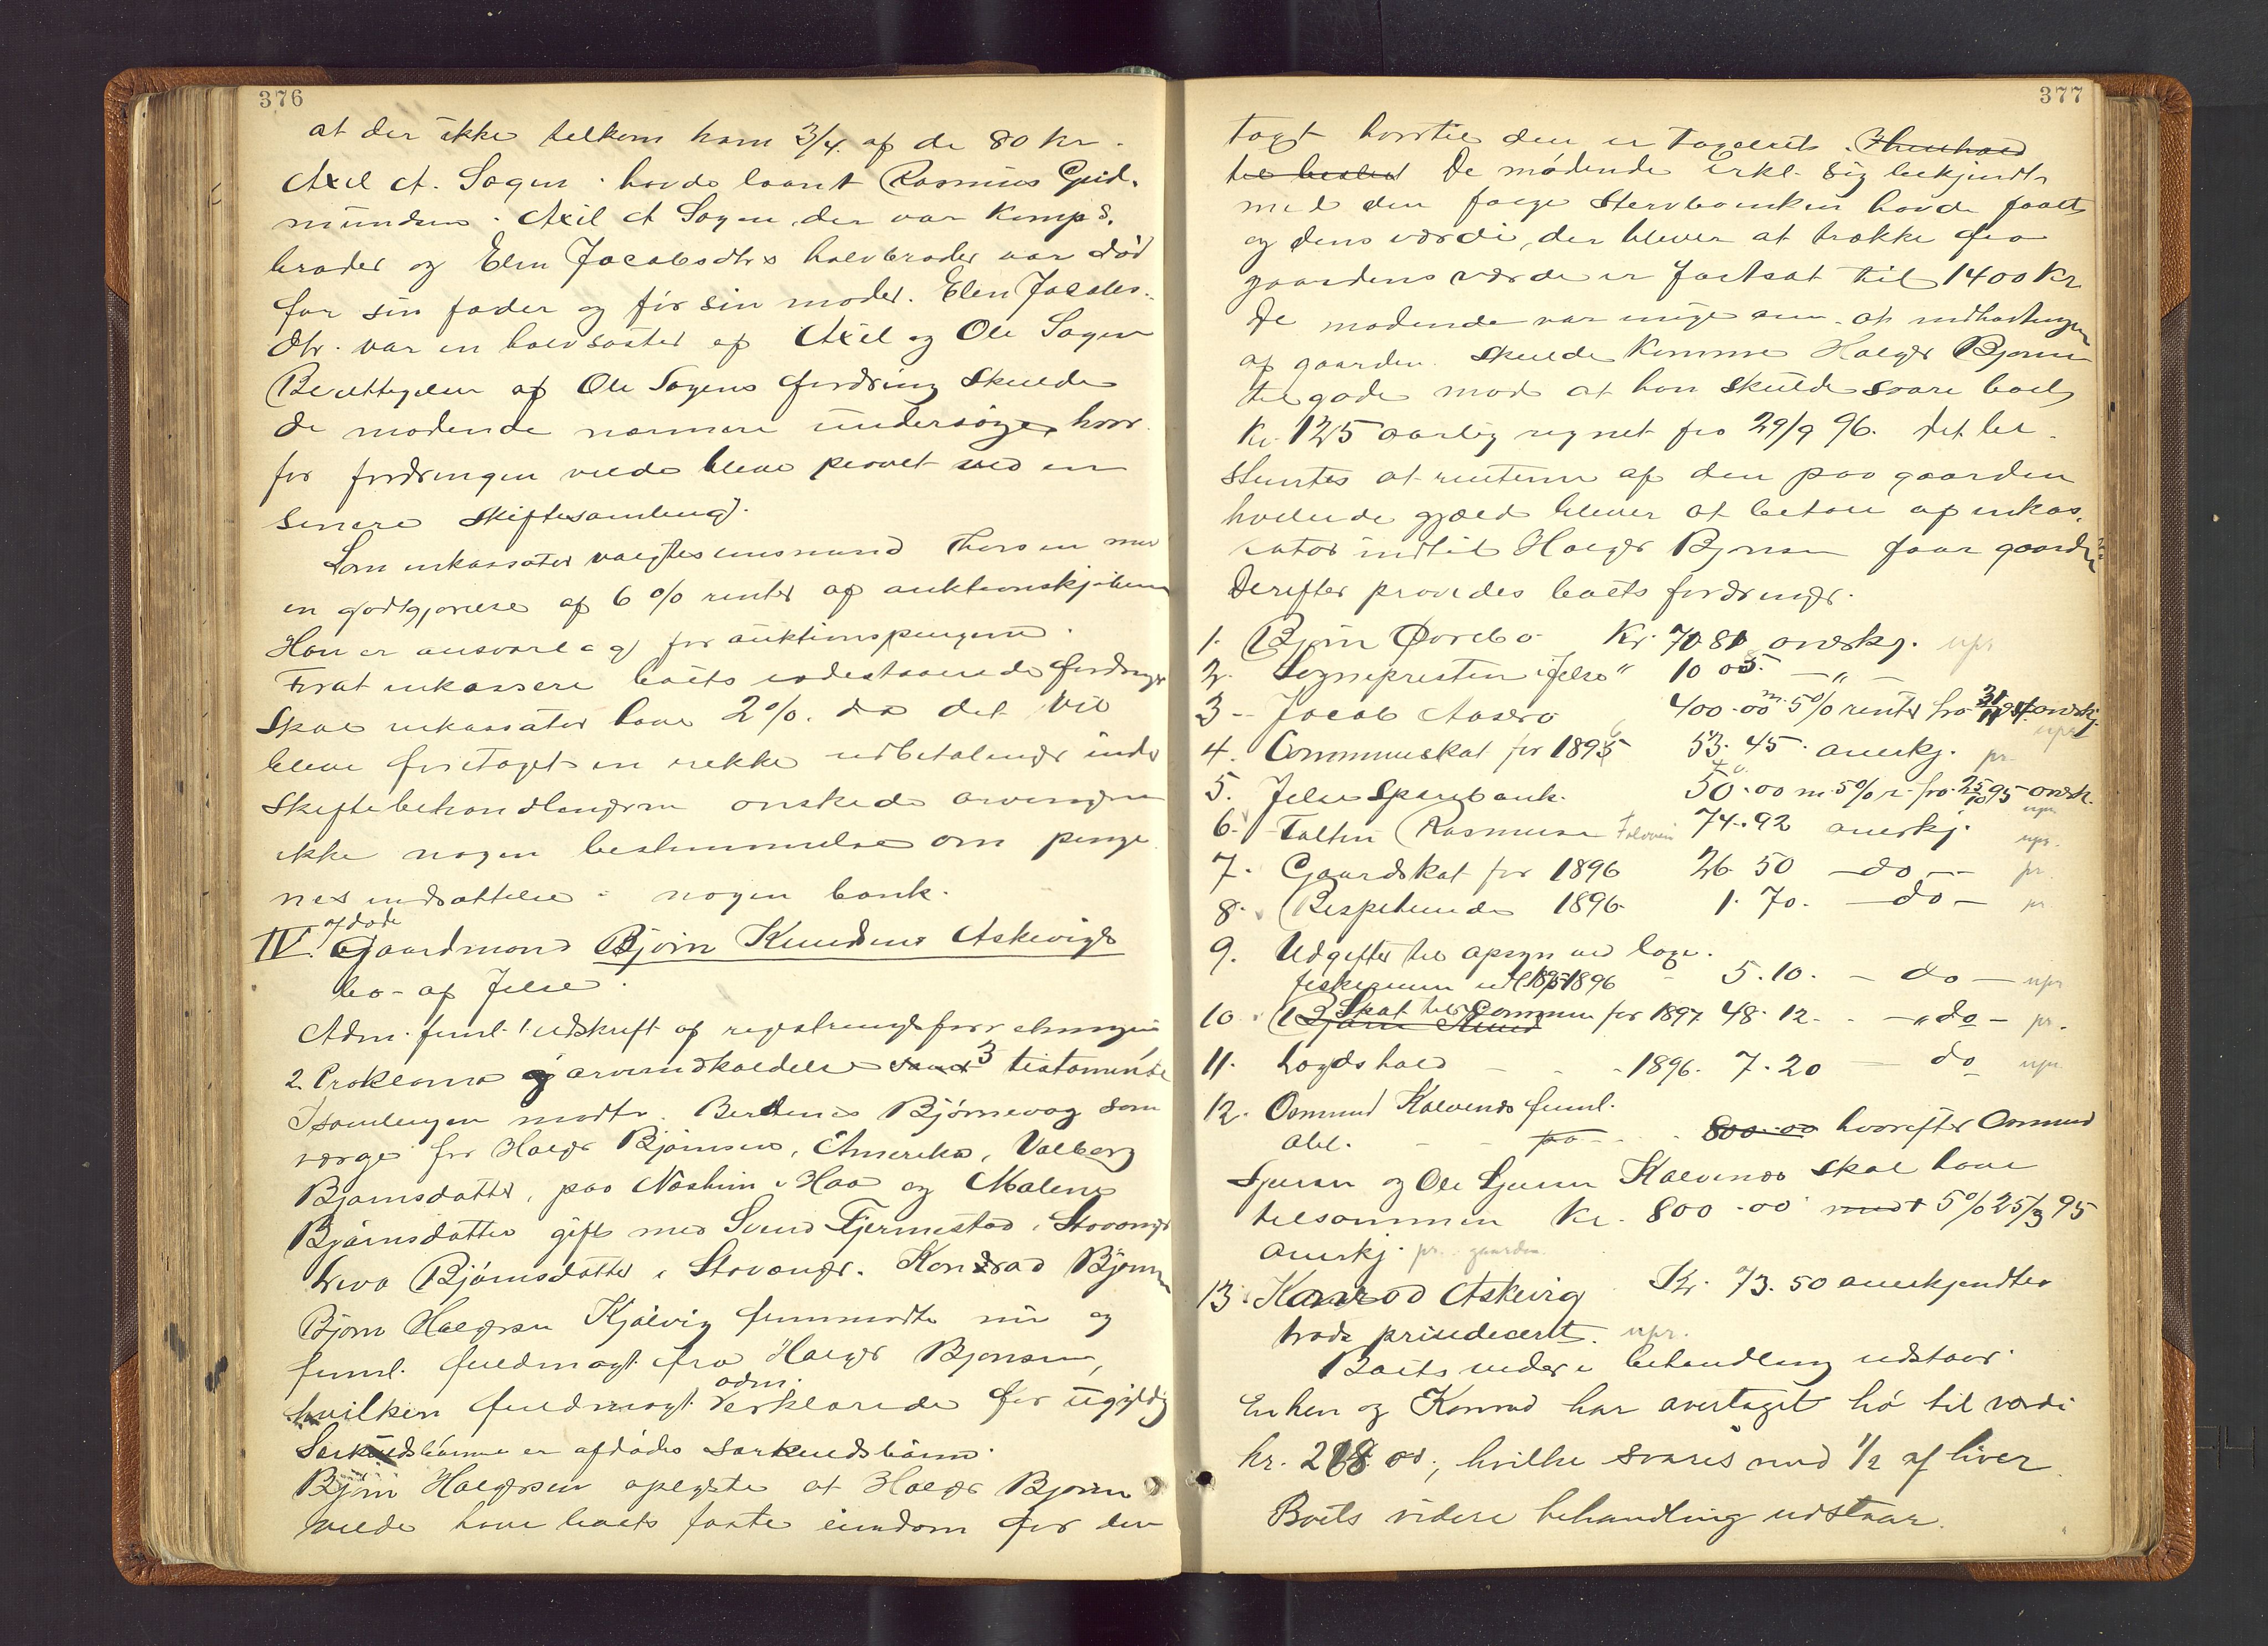 376
at der ikke tilkom ham 3/4 af de 80 kr.
Axel A. Sagen havde laant Rasmus Gud-
mundsen. Axel A Sagen der var Komp s.
broder og Elen Jacobsdtrs halvbroder var död
før sin fader og før sin moder. Elen Jacobs-
dtr. var en halvsøster af Axel og Ole Sagen
Berettigelsen af Ole Sagens fordring skulde
de mødende nærmere undersøge, hvor-
for fordringen vilde blive prøvet ved en
senere skiftesamling.
Som inkassator valgtes lensmand Thorsen mod
en godtgjørelse af 6 % renter af auktionskjøbene
Han er ansvarlig for auktionspengene.
For at inkassere boets udestaaende fordringer
skal inkassator have 2 %. Da det vil
blive foretaget en række udbetalinger under
skiftebehandlingen ønskede arvingerne
ikke nogen bestemmelse om penge-
nes indsættelse i nogen bank.
IV. afdøde Gaardmand Bjørn Knudsens Askevigs
bo - af Jelse.
Adm. freml. 1 udskrift af registreringsforretningen
2 Proklama og arveindkaldelse samt 3 testamente
I samlingen mødte. Bertinus Bjørnevag som
værge for Holger Bjørnsen, Amerika, Valborg
Bjørnsdatter, paa Næsheim i Haa og Malene
Bjørnsdatter gift med Svend Tjermestad i Stavanger
Liva Bjørnsdatter i Stavanger. Konrad Bjørnsen
Bjørn Holgersen Kjølvig fremmødte nu og
freml. fuldmagt fra Holger Bjørnsen,
hvilken fuldmagt adm. erklærede for ugyldig
Særkuldsbørnene er afdødes særkuldsbørn.
Bjørn Holgersen oplyste at Holger Bjørnsen
vilde have boets faste eiendom for den
377
taxt hvortil den er taxeret. Thinghold
til besled De mødende erkl. sig bekjendt
med den foege Stervboenken havde faaet
og dens værdi, der bliver at trække fra
gaardens værde er fastsat til 1400 Kr
De mødende var enige om at indhøstningen
af gaarden skulde komme Holger Bjørnsen
til gode mod at han skulde svare boet
Kr. 125 aarlig regnet fra 29/9 96. Det be-
stemtes at renterne af den paa gaarden
hvilende gjæld bliver at betale af inkas-
sator indtil Holger Bjørnsen faar gaarden
Derefter prøvedes boets fordringer.
1. Bjørn Øvrebø Kr. 70.81 anerkj. upr
2. Sognepresten i Jelse " 10 05 - " -
3 - Jacob Aaserø 400.00 m. 5 % renter fra anerkj. upr
4. Communeskat for 1895 53.45. anerkj. pr.
5. Jelse Sparebank. 50.00 m. 5 % r. fra 25/10 95 anerk. upr
6. Taltin Rasmusen 74.92 anerkj. upr.
7. Gaardskat for 1896 26 50 - do - - pr.
8. Bispetiende 1896 1. 70. - do - pr
9. Udgifter til opsyn ved laxe-
fiskerierne 1895 1896 5.10. - do - upr
10. Skat til Commun for 1897 48.12. - " do - pr.
11. Lægdshold - - - 1896. 7.20 - do upr.
12. Osmund Kalvenes freml.
obl. - - paa - - 800.00 hvorefter Osmund
Sjursen og Ole Sjursen Kalvenæs skal have
tilsammen Kr. 800.00 med 5 % 25/3 95
anerkj. pr. i gaarden.
13. Konrad Askevig Kr. 73.50 anerkjendtes
trods prisedecerlt. upr.
Boets videre behandling udstaar.
Enken og Konrad har overtaget hø til værdi
kr. 218.00, hvilke svares med 1/2 af hver
Boets videre behandling udstaar.